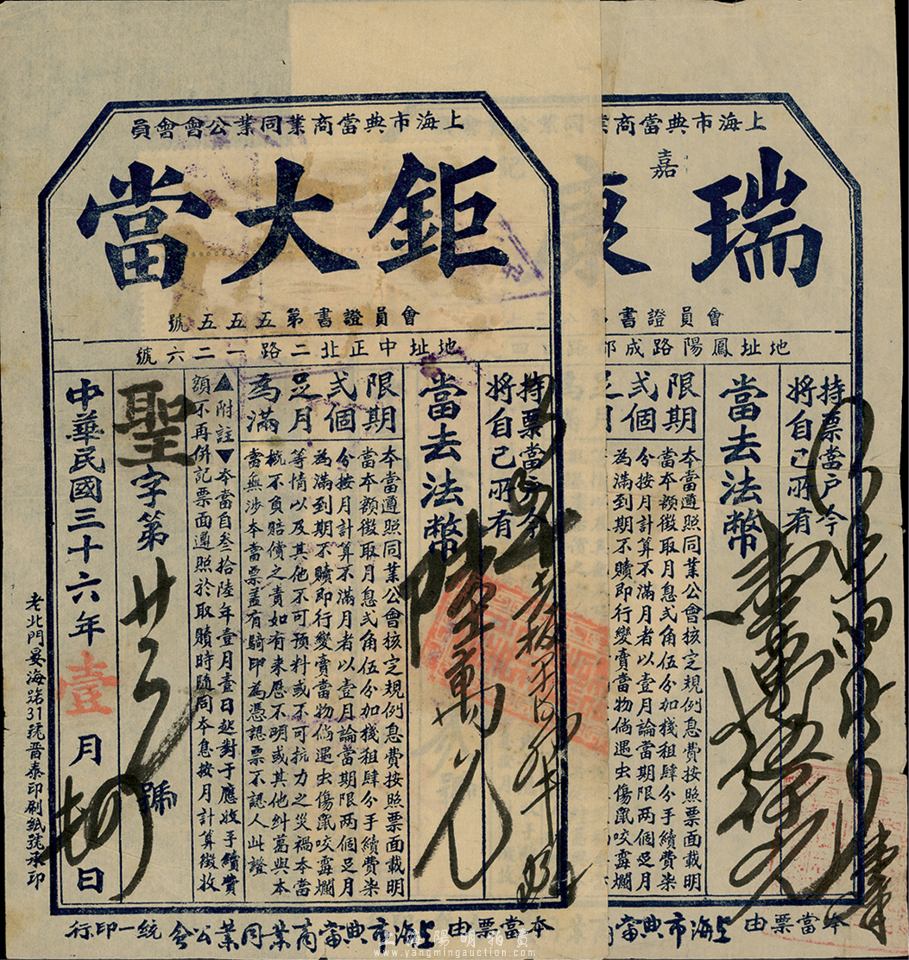 上海市典當商業同業公會會員
鉅大當
會員證書第五五五號
地址中正北二路一二六號
持票當戶今
將自己所有
當去法幣
限期
弍個
足月
為滿
本當遵照同業公會核定規例息費按照票面載明
當本額徵取月息弍角伍分加棧租肆分手續費柒
分按月計算不滿月者以壹月論當期限两個足月
為滿到期不贖即行變賣當物倘遇虫傷鼠咬霉爛
等情以及其他不可預料或不可抗力之災禍本當
概不負賠償之責如有來歷不明或其他纠葛與本
當無涉本當票蓋有騎印為憑認票不認人此證
▲附註▼本當自叁拾陸年壹月壹日起對于應收手續費
額不再併記票面遵照於取贖時隨同本息按月計算徵收
聖字第廿號
中華民國三十六年壹月日
老北門晏海路31號晋泰印刷紙號承印
本當票由上海市典當商業同業公會統一印行
上海市典當商業
嘉
瑞康
會員證書
地址鳳陽路成都
持票當戶今
將自己所有
當去法幣
限期
弍個
足月
本當遵照同業公會核定規例息費按照票面載明
當本額徵取月息弍角伍分加棧租肆分手續費柒
分按月計算不滿月者以壹月論當期限两個足月
為滿到期不贖即行變賣當物倘遇虫傷鼠咬霉爛
本當票由上海市典當商
陽明拍賣
www.yangmingauction.com